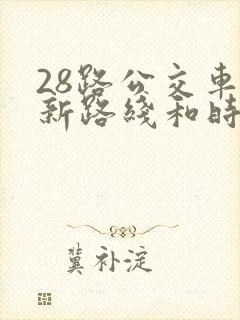 28路公交車
新路綫和時
冀补淀